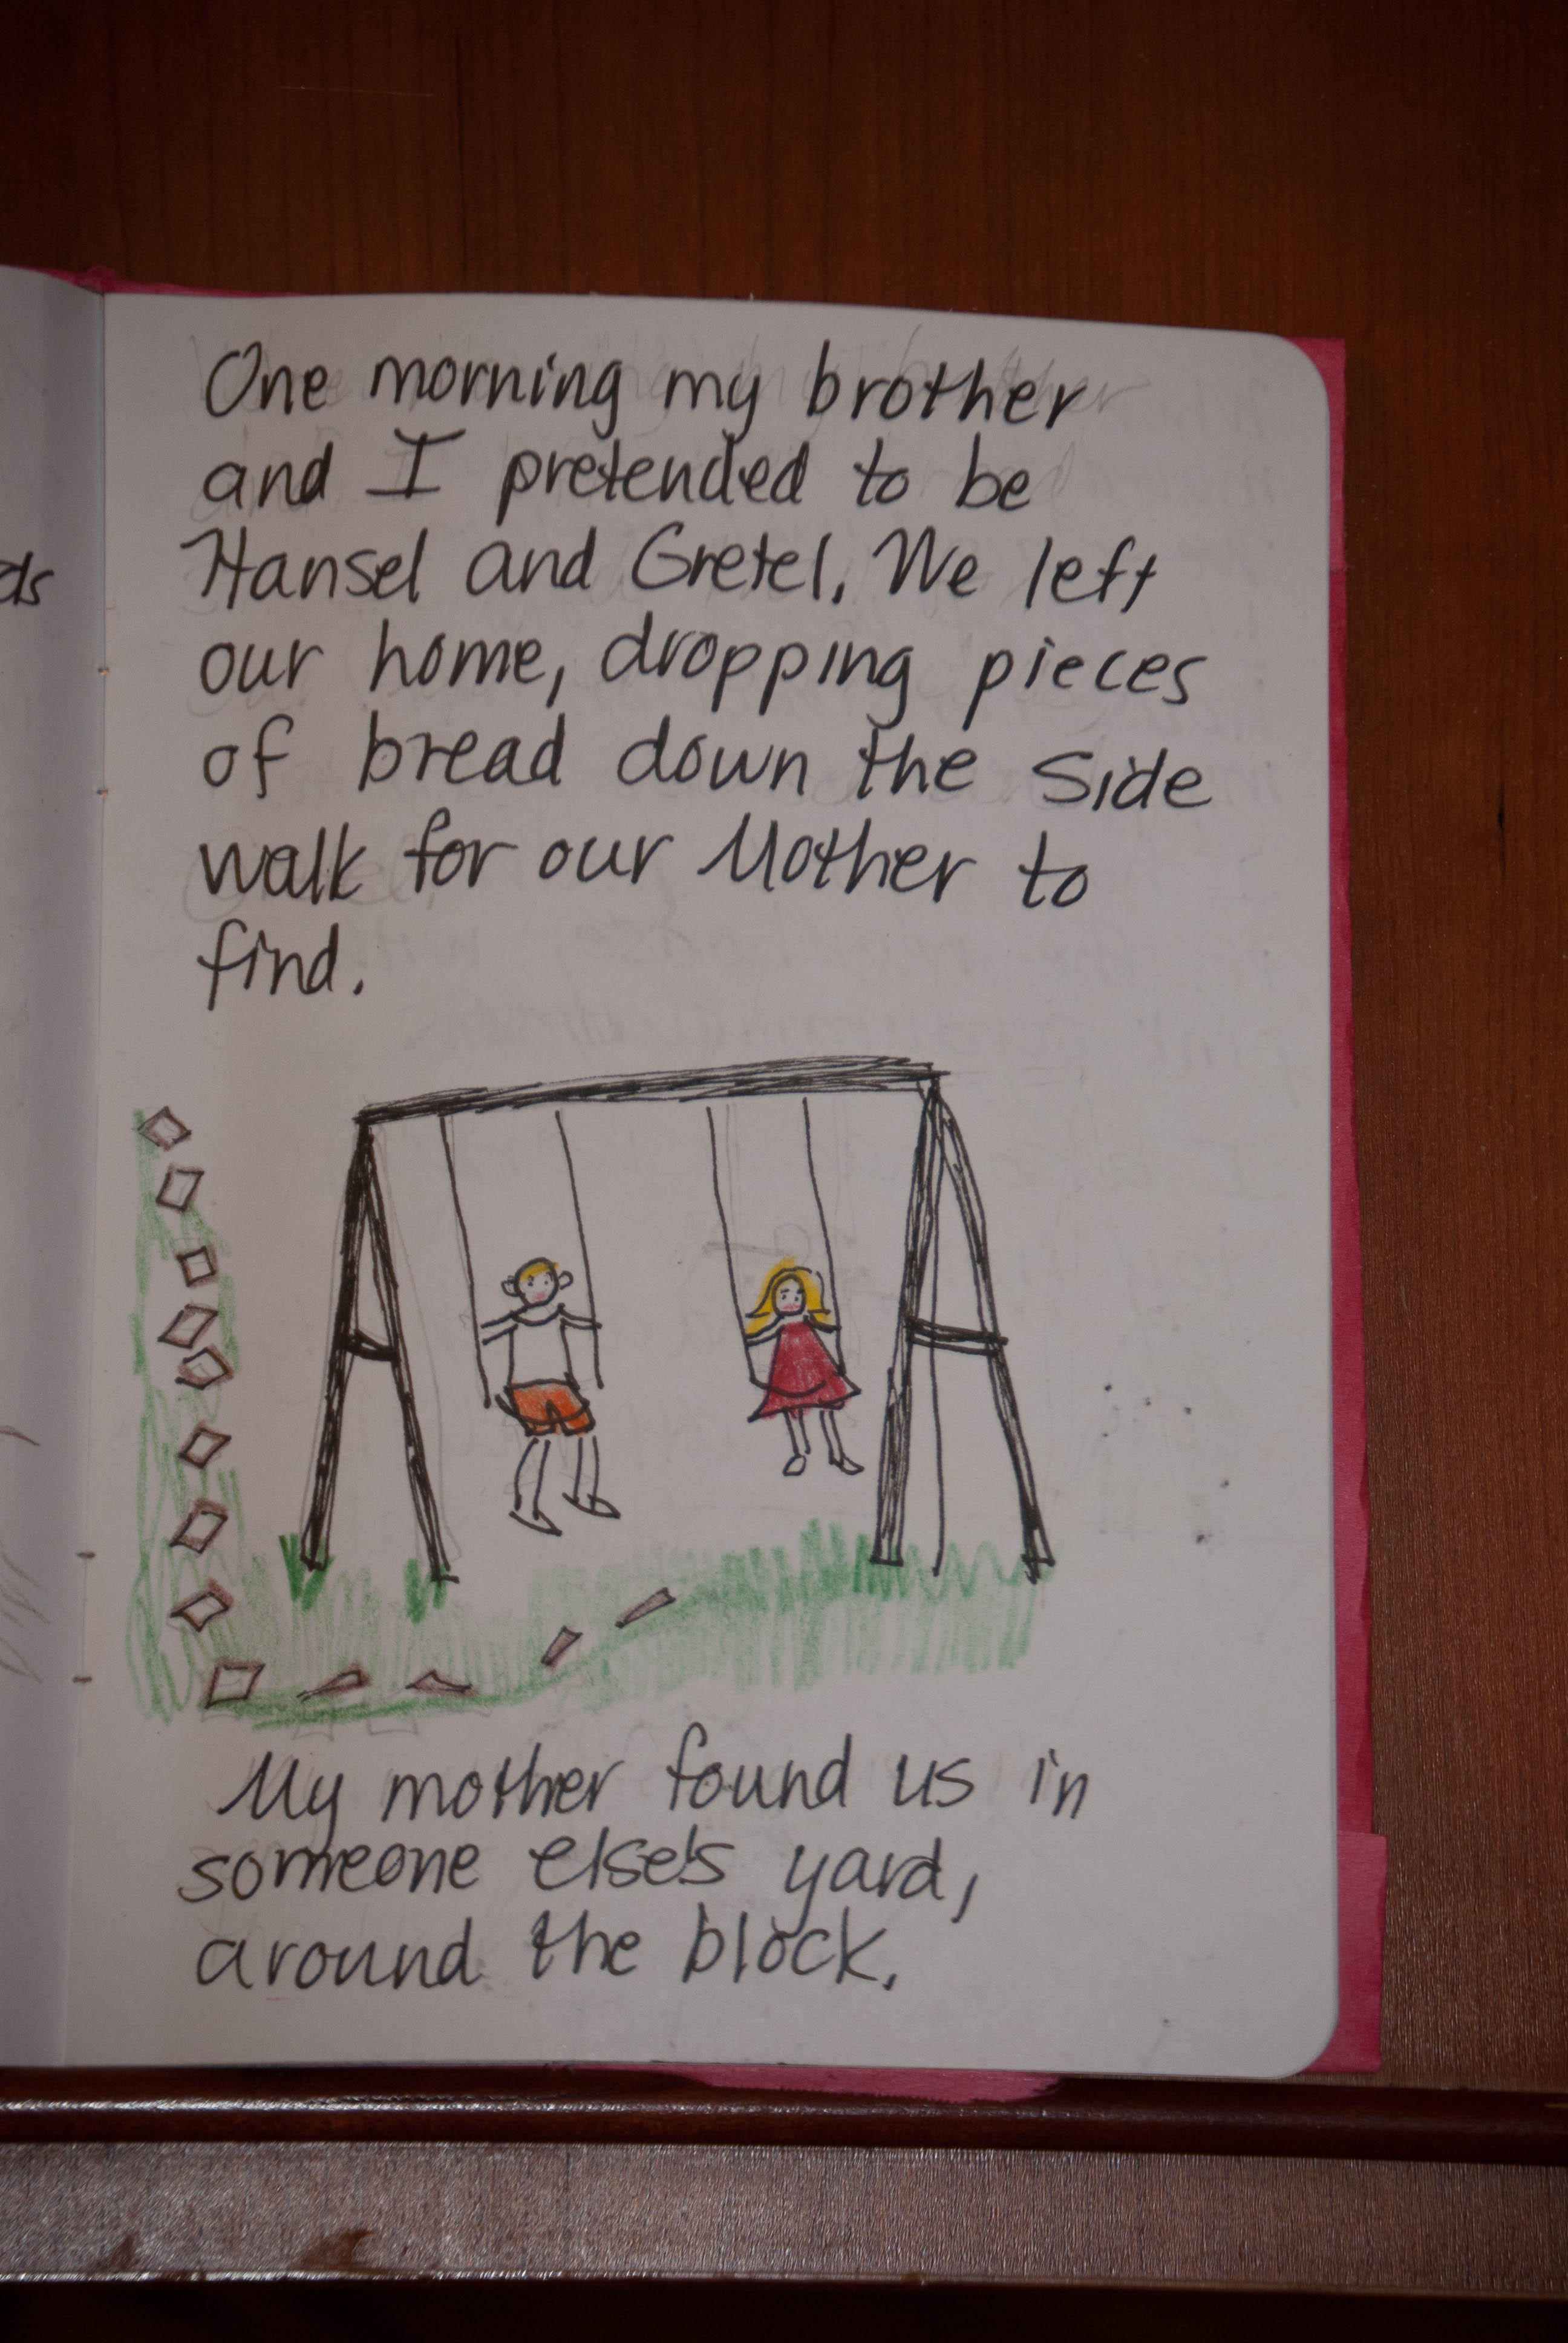 One morning my brother
and I pretended to be
Hansel and Gretel. We left
our home, dropping pieces
of bread down the side
walk for our Mother to
find.
My mother found us in
someone else's yard,
around the block.